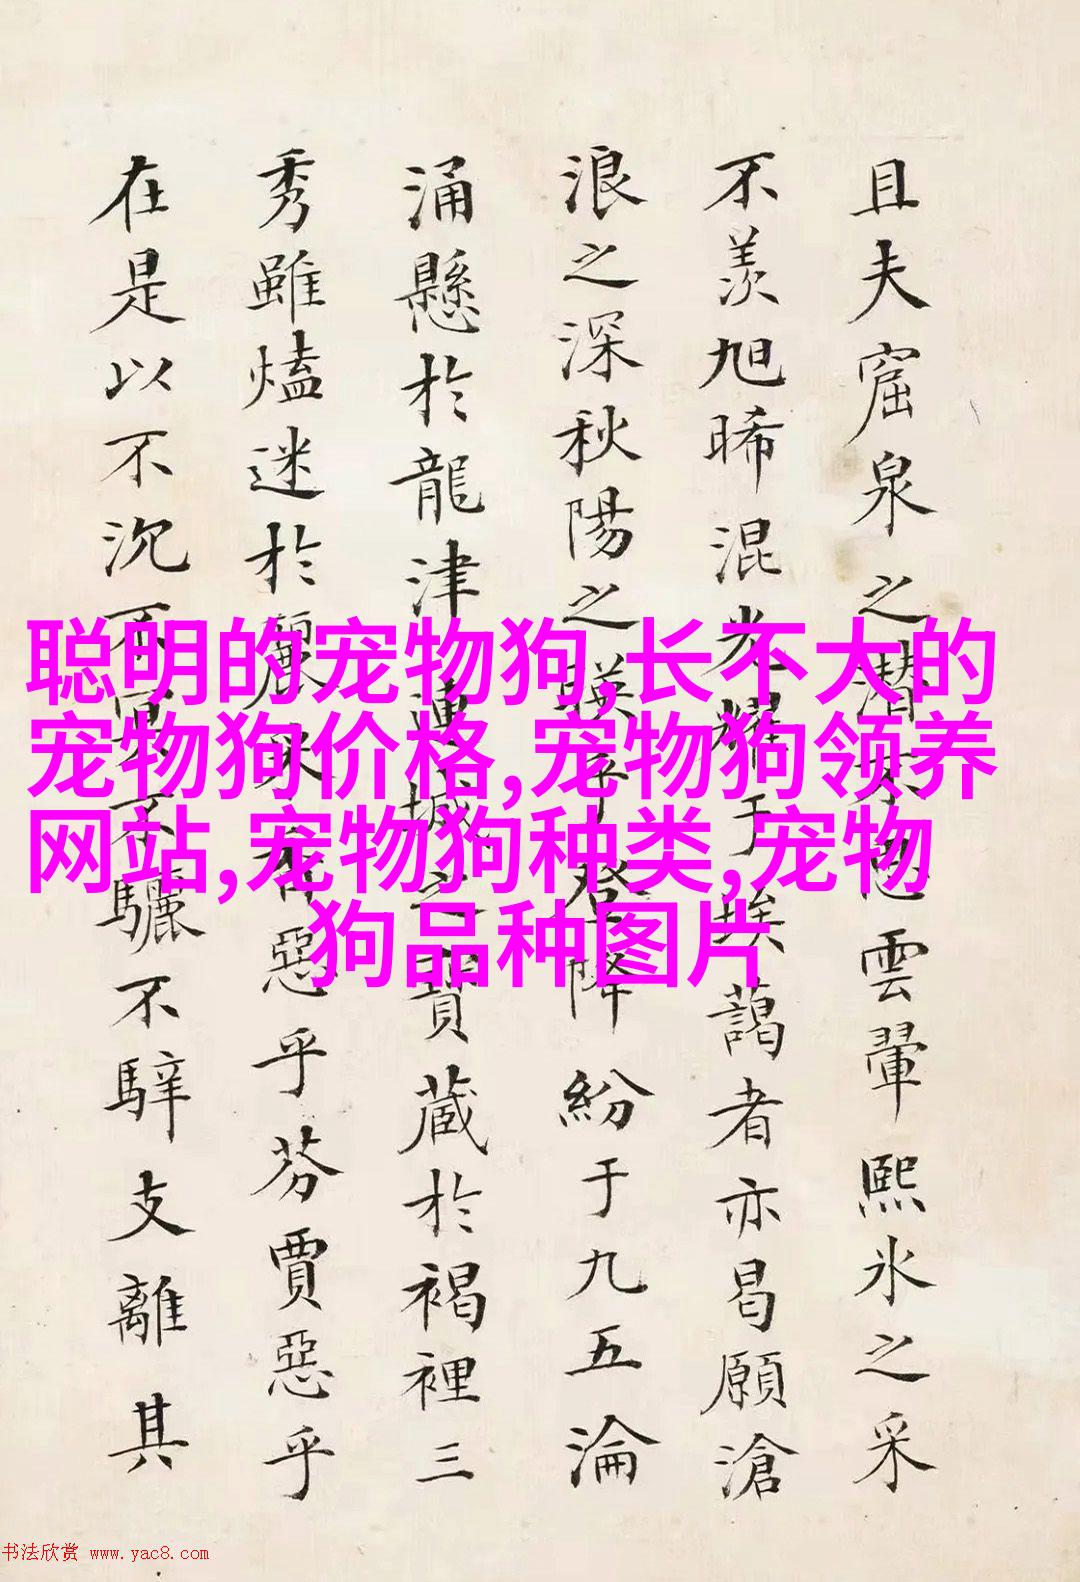 且夫窟泉之潜雲翬熙氷之采
不羨旭晞混光耀于埃藹者亦曷願滄
浪之深秋陽之暎乎登降紛于九五淪
涌懸於龍津連城之寶藏於褐裡三
秀雖迷於采惡乎芬賈惡乎
在是以不沉不不驪不騂支離其
聪明的宠物狗,长不大的
宠物狗价格,宠物狗领养
网站,宠物狗种类,宠物
狗品种图片
书法欣赏 www.yac8.com